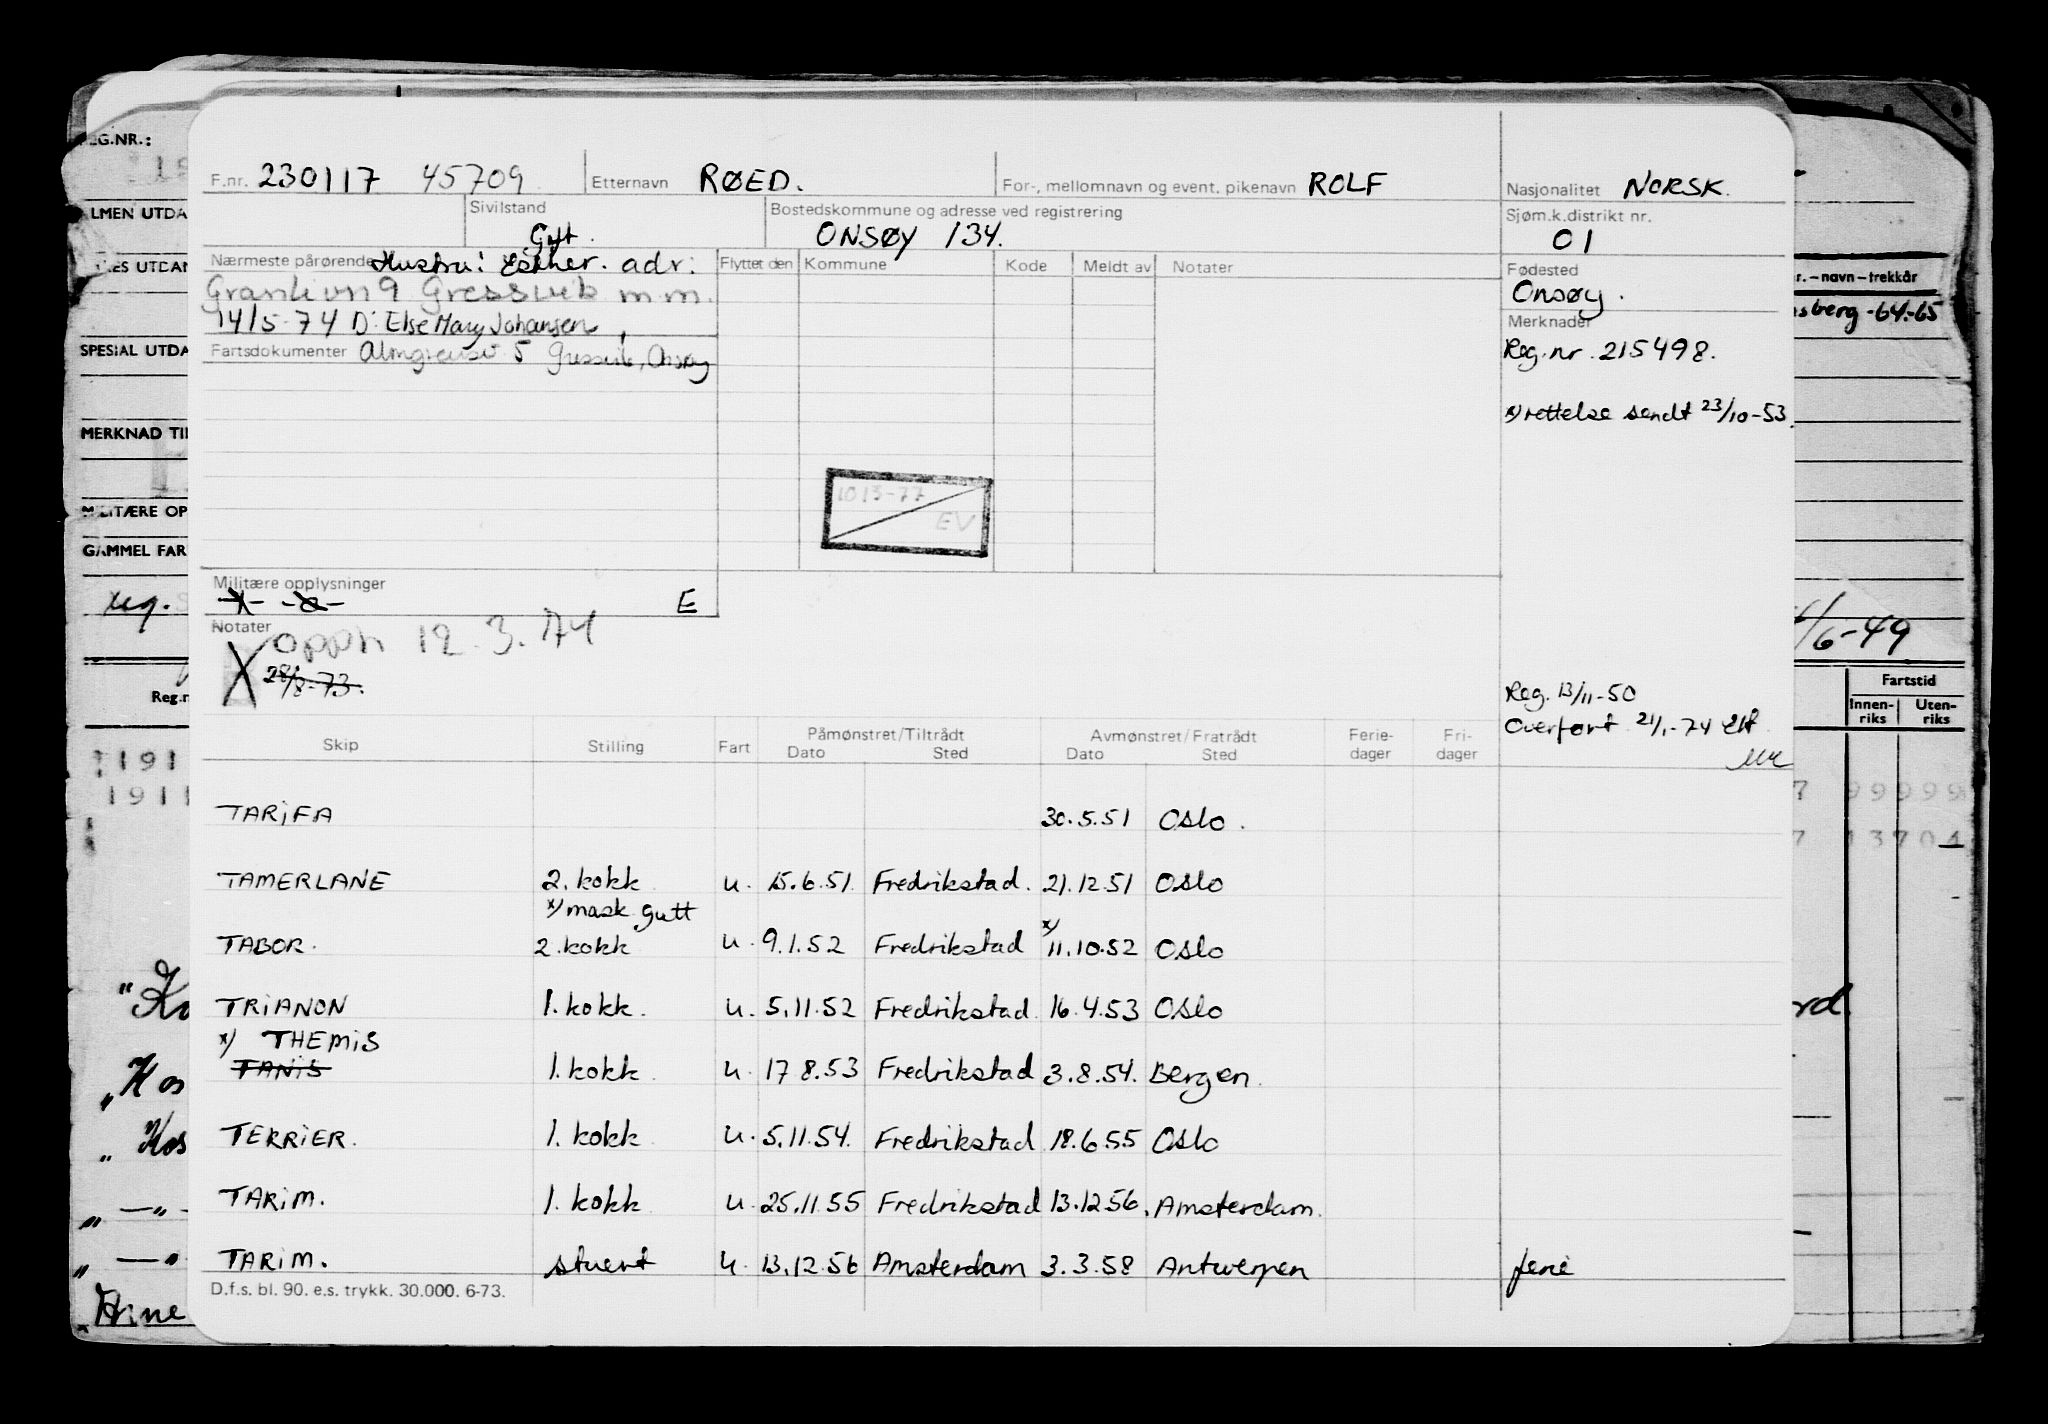 REG.NR.:
F.nr. 230117 45709 Etternavn RØED. For-, mellomnavn og event. pikenavn ROLF Nasjonalitet NORSK.
LMEN UTDA Sivilstand Gift. Bostedskommune og adresse ved registrering ONSØY 134. Sjøm.k.distrikt nr. 01
ES UTDAN Nærmeste pårørende Hustru: Esther. adr: Flyttet den Kommune Kode Meldt av Notater Fødested Onsøy. r.–navn–trekkår
9 Gressvik m.m.
14/5-74 D: Else Mary Johansen, Merknader sberg -64-65
SPESIAL UTDA Fartsdokumenter 5 Gressvik, Onsøy Reg.nr. 215498.
x) rettelse sendt 23/10-53.
MERKNAD TIL
1013-77
EV
MILITÆRE OP
GAMMEL FAR
Militære opplysninger
E
reg.
Notater
opph 12.3.74
28/8-73.
/6-49
Reg. 13/11-50
Overført 21/1-74 EH
Reg.n Fartstid
Innen-riks Uten-riks
Skip Stilling Fart Påmønstret/Tiltrådt Dato Sted Avmønstret/Fratrådt Dato Sted Ferie-dager Fri-dager
191
1911
7 99999
7 13704
TARIFA 30.5.51 Oslo.
TAMERLANE 2. kokk u. 15.6.51 Fredrikstad. 21.12.51 Oslo
x) mask gutt x)
TABOR. 2. kokk u. 9.1.52 Fredrikstad 11.10.52 Oslo
TRIANON 1. kokk. u. 5.11.52 Fredrikstad. 16.4.53 Oslo
x) THEMIS
TANIS 1. kokk. u. 17.8.53 Fredrikstad 3.8.54. Bergen.
TERRIER. 1. kokk u. 5.11.54. Fredrikstad 18.6.55 Oslo
TARIM. 1. kokk u. 25.11.55 Fredrikstad 13.12.56. Amsterdam.
TARIM. stuert u. 13.12.56 Amsterdam 3.3.58 Antwerpen ferie
D.f.s. bl. 90. e.s. trykk. 30.000. 6-73.